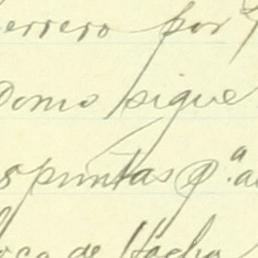 errero por
Domo sigue
spuntas @.ª a
oca de Hacha